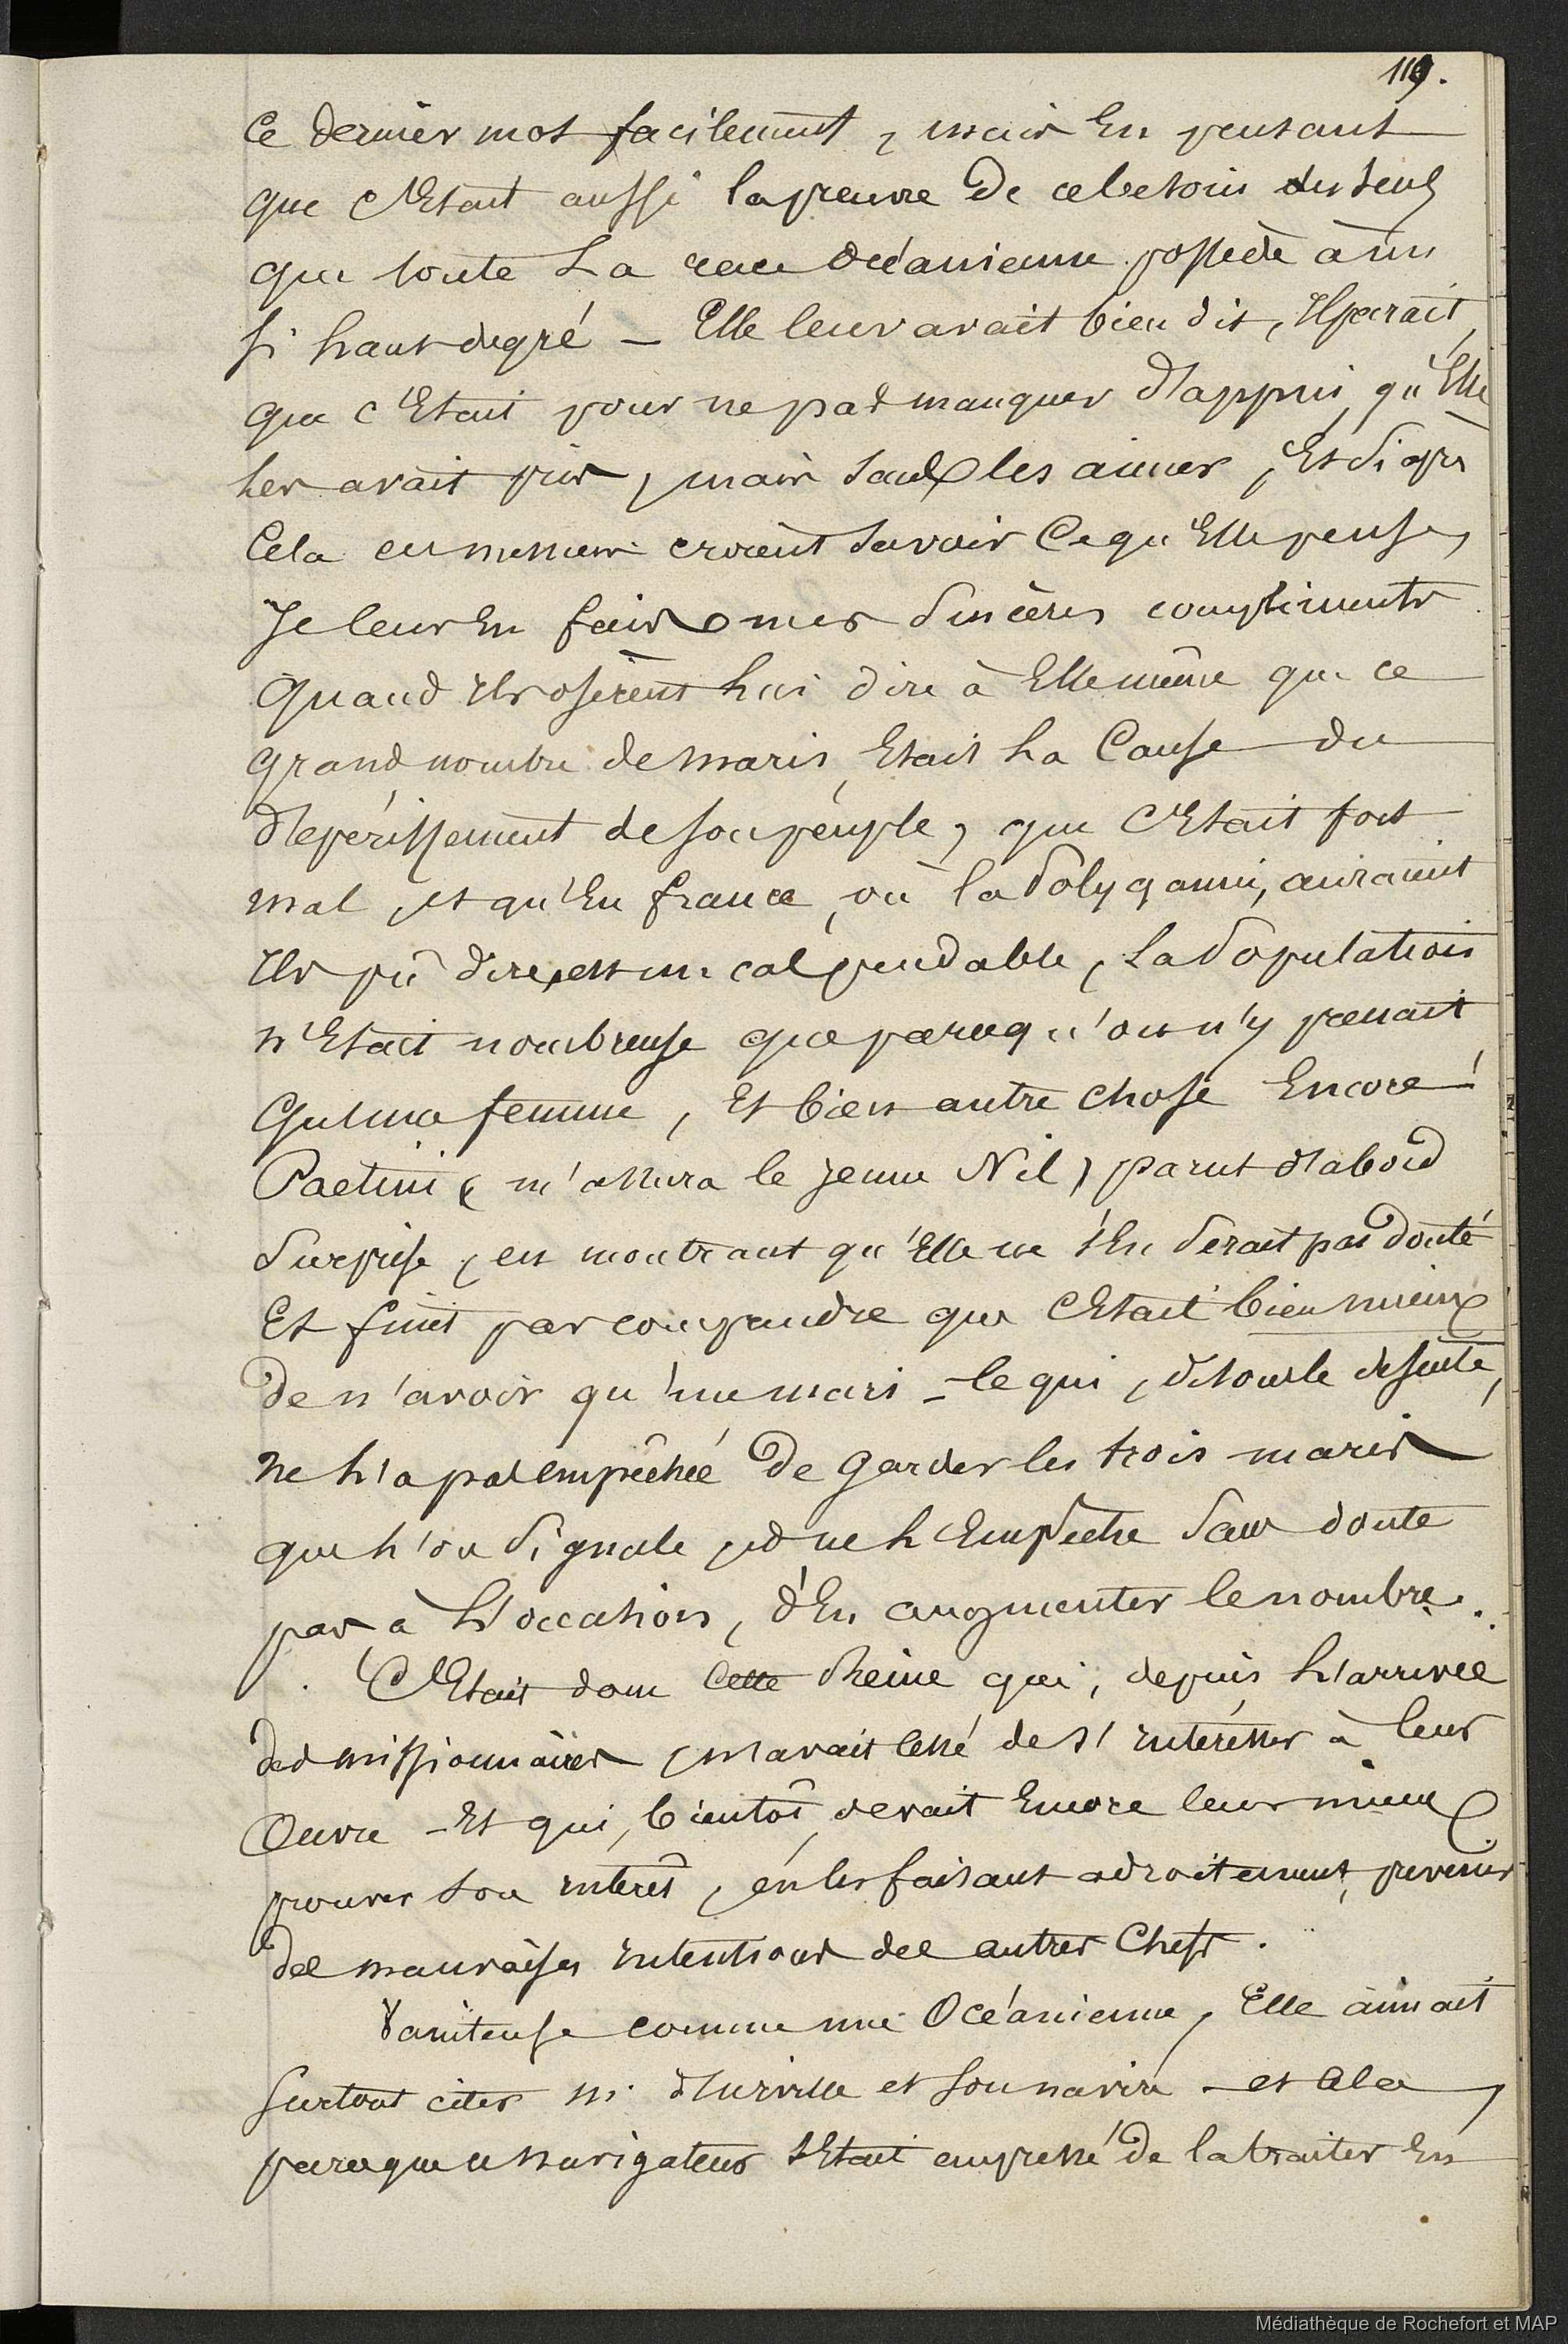 119.
Ce dernier mot facilement, mais En pensant
que c'Etait aussi la preuve de ce besoin des sens
que toute La race Océanienne possède à un
si haut degré – Elle leur avait bien dit, Il paraît,
que c'Etait pour ne pas manquer d'appui, qu'Elle
les avait pris, mais sans les aimer, Et si après
Cela ces messieurs croient savoir Ce qu'Elle pense,
Je leur En fais mes sincères compliments
Quand Ils osèrent lui dire à Elle même que ce
grand nombre de maris, Etait La Cause du
dépérissement de son peuple, que c'Etait fort
mal, et qu'En france, où la Polygamie, auraient
Ils pû dire, est un cas pendable, La Population
n'Etait nombreuse que parce qu'on n'y prenait
Qu'une femme, Et bien autre chose Encore !
Paetini (m'assura le jeune Nil) parut d'abord
Surprise, en montrant qu'Elle ne s'En serait pas douté
Et finit par comprendre que c'Etait bien mieux
de n'avoir qu'un mari – Ce qui, de suite,
ne L'a pas empêchée de garder les trois maris
que L'on Signale, et ne L'Empêche Sans doute
pas, à L'occasion, d'En augmenter le nombre.
C'Etait donc Cette Reine qui, depuis L'arrivée
des missionnaires, n'avait cessé de s'Intéresser à leur
Oeuvre – Et qui, bientôt, devait Encore leur mieux
prouver son Intérêt, en les faisant adroitement, prevenir
des mauvaises Intentions des autres Chefs.
Vaniteuse comme une Océanienne, Elle aimait
Surtout citer M. d'Urville et son navire – et Cela,
parce que ce navigateur s'Etait empressé de la traiter En